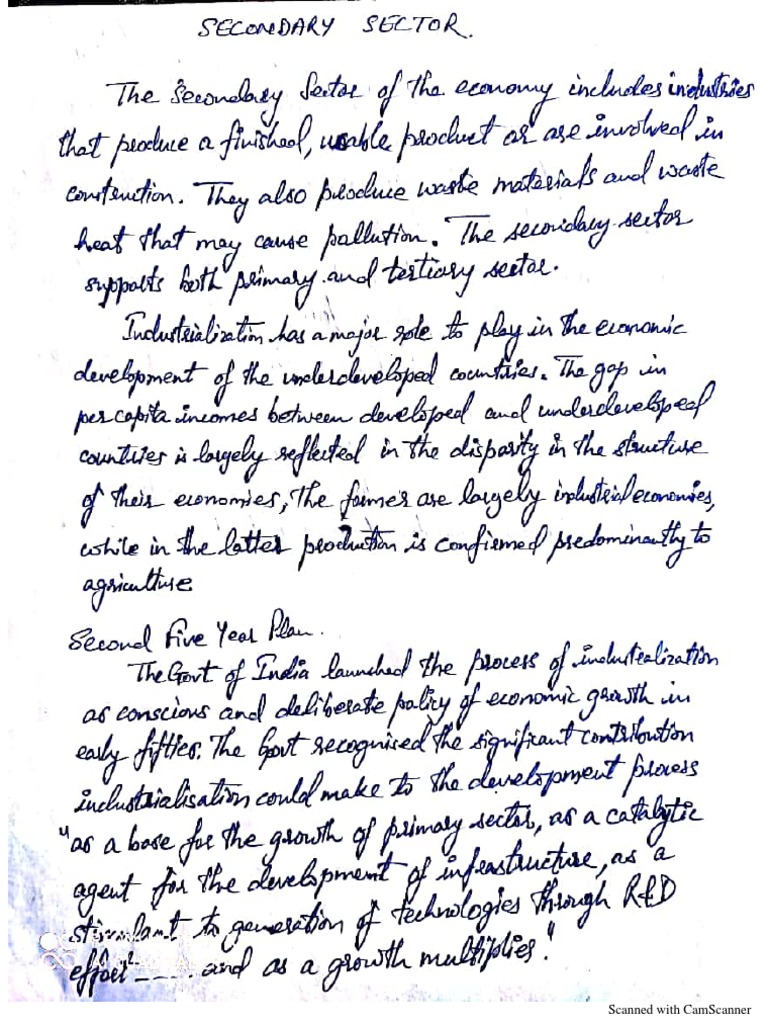 SECONDARY SECTOR.
The Secondary Sector of the economy includes industries
that produce a finished, usable product or are involved in
construction. They also produce waste materials and waste
heat that may cause pollution. The secondary sector
supports both primary and tertiary sector.
Industrialization has a major role to play in the economic
development of the underdeveloped countries. The gap in
per capita incomes between developed and underdeveloped
countries is largely reflected in the disparity in the structure
of their economies, The former are largely industrial economies,
while in the latter production is confirmed predominantly to
agriculture
Second Five Year Plan.
The Govt of India launched the process of industrialization
as conscious and deliberate policy of economic growth in
early fifties. The Govt recognised the significant contribution
industrialisation could make to the development process
"as a base for the growth of primary sector, as a catalytic
agent for the development of infrastructure, as a
stimulant to generation of technologies through R&D
effort ---- and as a growth multiplier."
Scanned with CamScanner